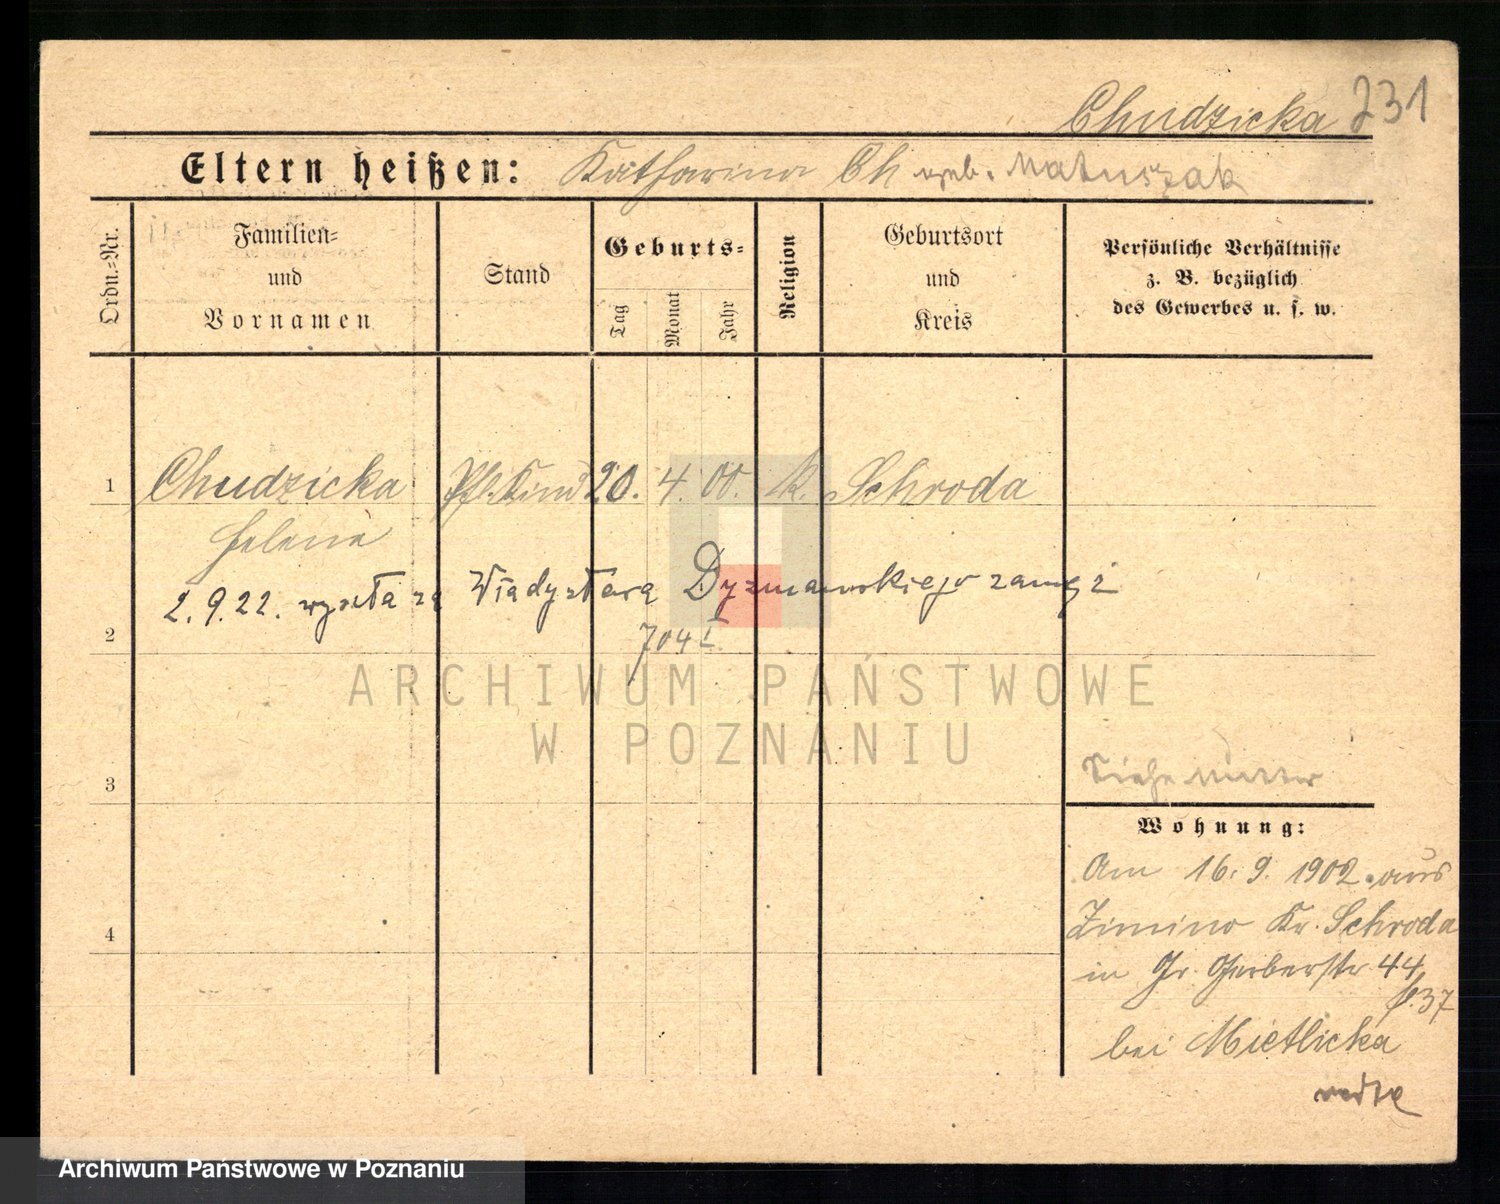 Chudzicka 231
Eltern heißen: Katharina Ch geb. Matuszak
Ordn.-Nr.
Familien-
und
Vornamen
Stand
Geburts-
Tag
Monat
Jahr
Religion
Geburtsort
und
Kreis
Persönliche Verhältnisse
z. B. bezüglich
des Gewerbes u. s. w.
1 Chudzicka Pfl. Kind 20. 4. 00. k. Schroda
Helene
2. 9. 22. wyszła za Władysława Dyzmańskiego zamęż
2
704
ARCHIWUM PAŃSTWOWE
W POZNANIU
3
Siehe Mutter
Wohnung:
Am 16. 9. 1902 aus
Zimino Kr. Schroda
4
in Gr. Gerberstr 44
37
bei Mietlicka
Archiwum Państwowe w Poznaniu